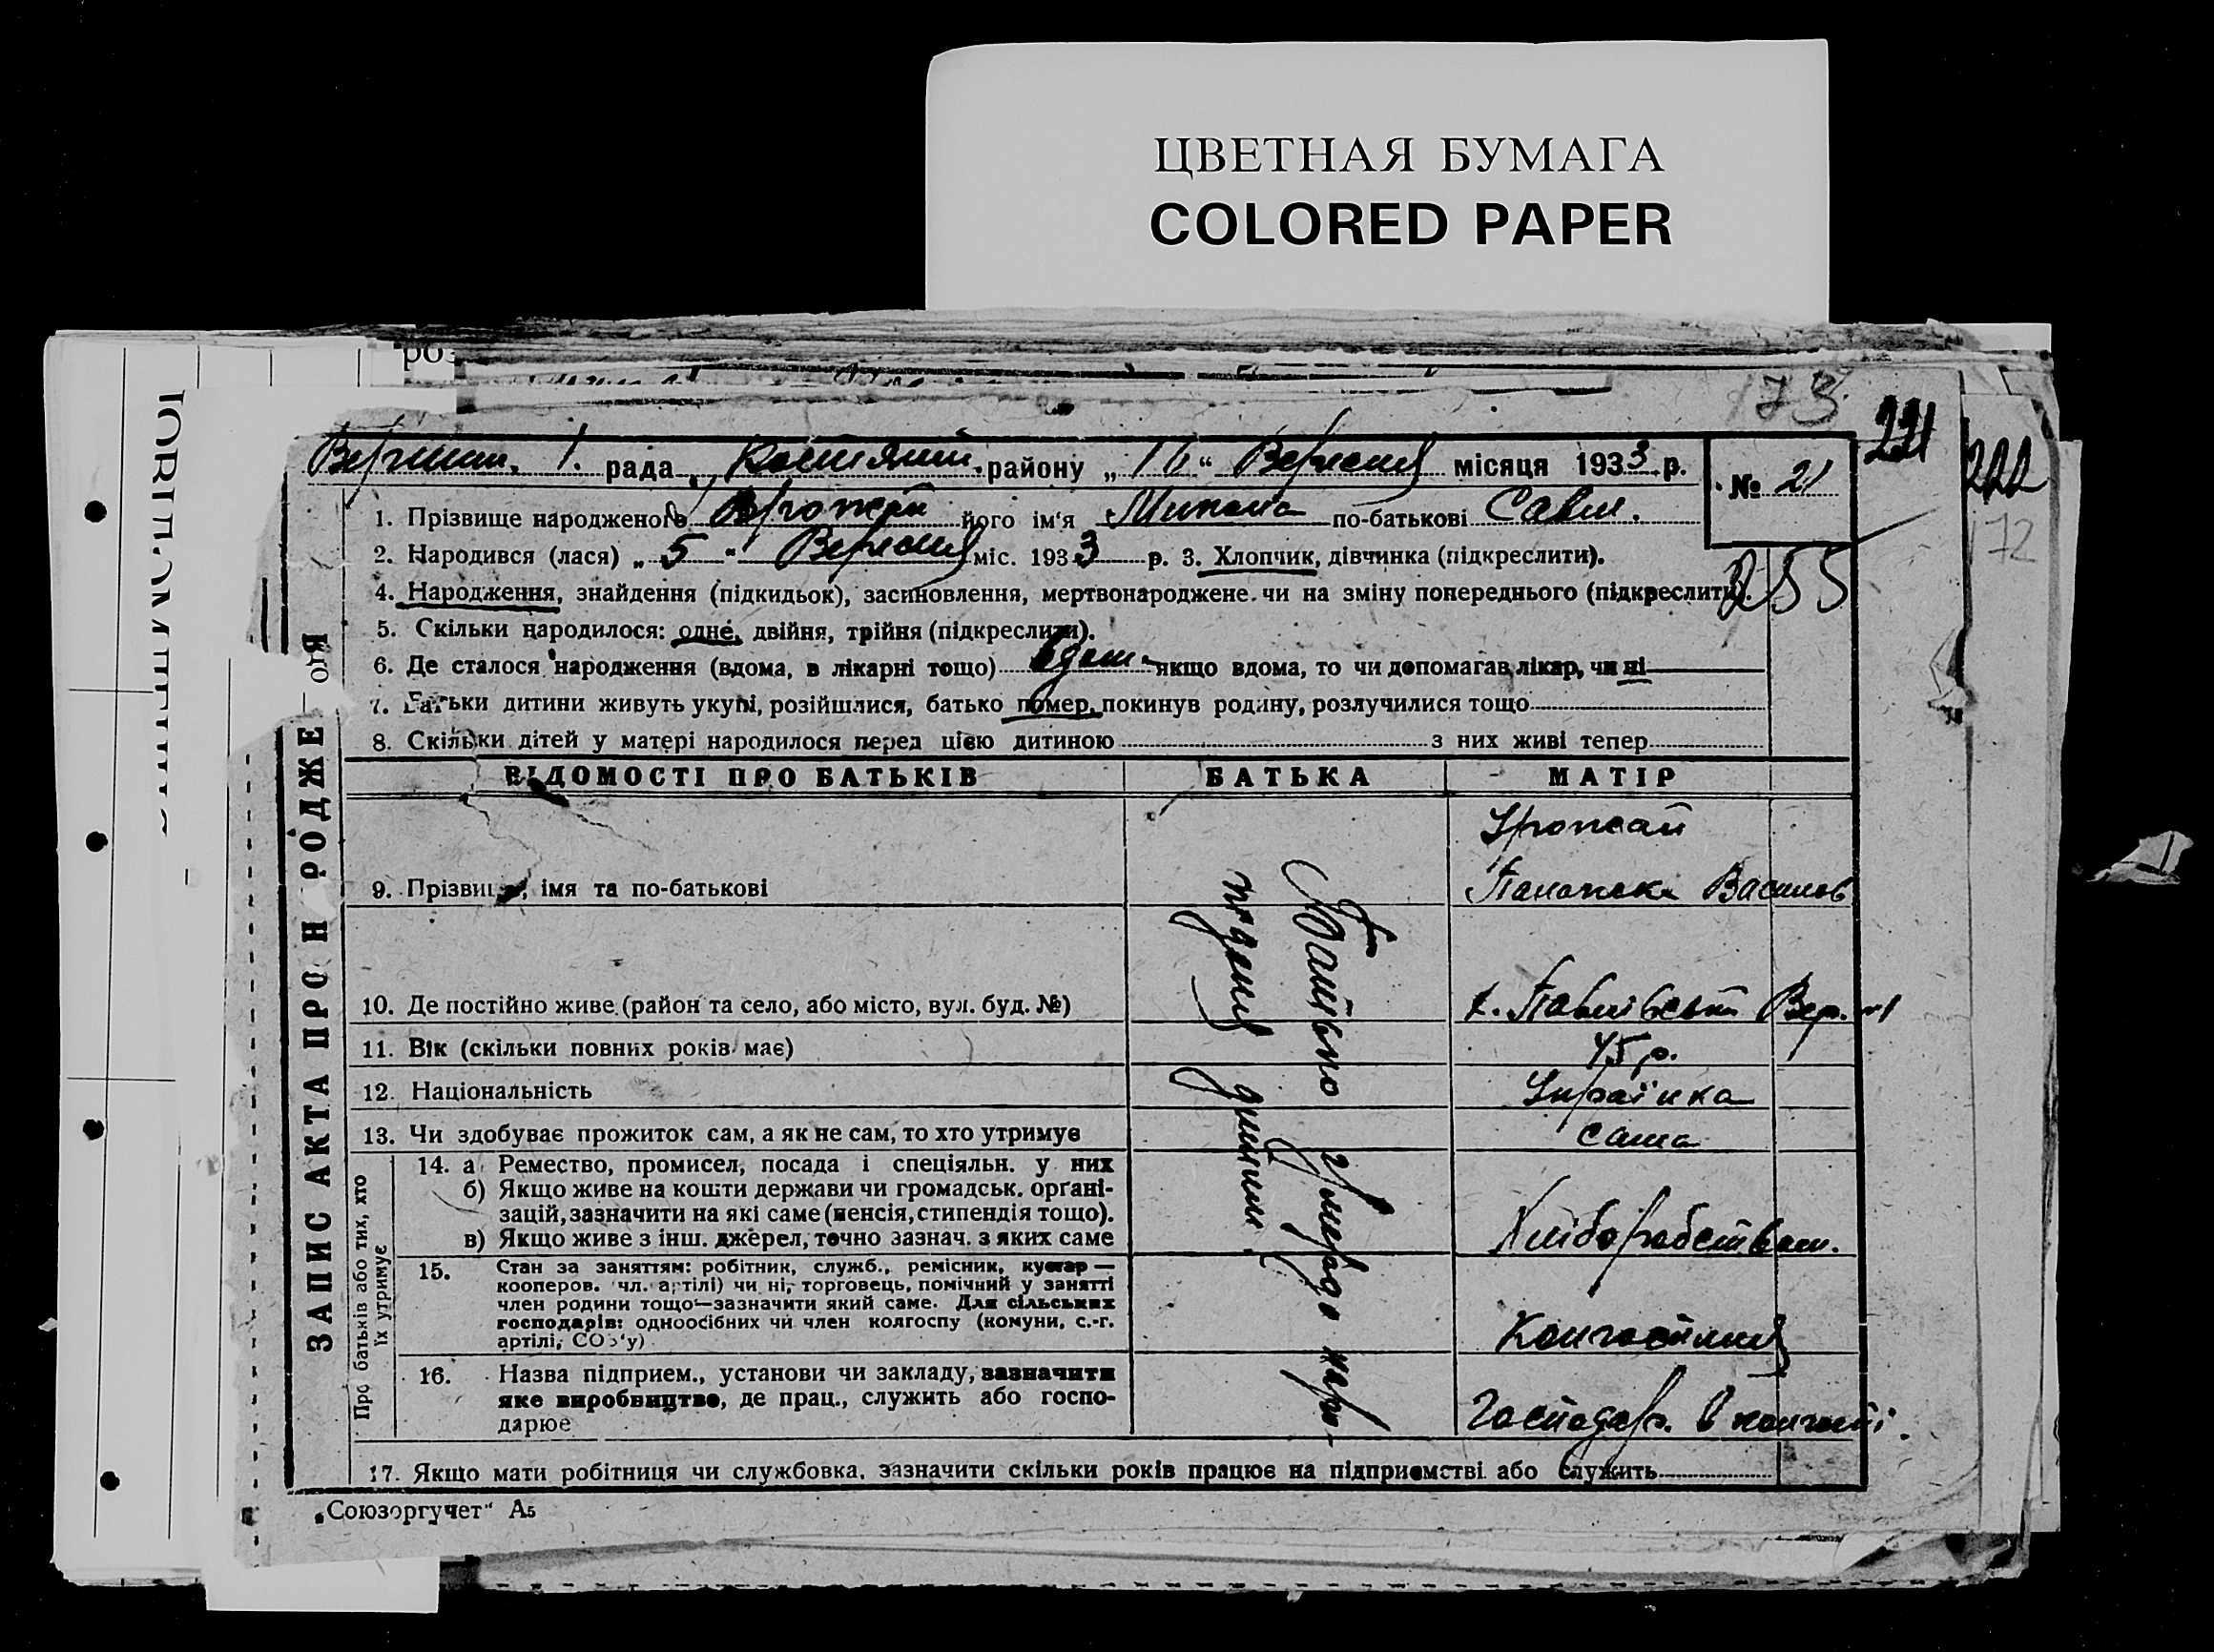 ЦВЕТНАЯ БУМАГА
COLORED PAPER
роз
173
221
222
172
255
1. рада, району „16“ Вересня місяця 1933 р.
№ 21
1. Прізвище народженого Врожай його ім'я Микола по-батькові Савел.
2. Народився (лася) „5“ Вересня міс. 1933 р. 3. Хлопчик, дівчинка (підкреслити).
4. Народження, знайдення (підкидьок), засиновлення, мертвонароджене чи на зміну попереднього (підкреслити).
5. Скільки народилося: одне, двійня, трійня (підкреслити).
6. Де сталося народження (вдома, в лікарні тощо) вдома якщо вдома, то чи допомагав лікар, чи ні
7. Батьки дитини живуть укупі, розійшлися, батько помер, покинув родину, розлучилися тощо
8. Скільки дітей у матері народилося перед цією дитиною з них живі тепер
ВІДОМОСТІ ПРО БАТЬКІВ БАТЬКА МАТІР
Урожай
9. Прізвище, імя та по-батькові Василів
10. Де постійно живе (район та село, або місто, вул. буд. №) х.
11. Вік (скільки повних років має) 45 р.
12. Національність Українка
13. Чи здобуває прожиток сам, а як не сам, то хто утримує сама
14. а Ремество, промисел, посада і спеціяльн. у них
б) Якщо живе на кошти держави чи громадськ. орґані-
зацій, зазначити на які саме (пенсія, стипендія тощо).
в) Якщо живе з інш. джерел, точно зазнач. з яких саме Хліборобством.
15. Стан за заняттям: робітник, служб., ремісник, кустар—
кооперов. чл. артілі) чи ні, торговець, помічний у занятті
член родини тощо—зазначити який саме. Для сільських
господарів: одноосібних чи член колгоспу (комуни, с.-г.
артілі, СОЗ'у)
16. Назва підприєм., установи чи закладу, зазначити
яке виробництво, де прац., служить або госпо-
дарює Господар. в колгоспі.
17. Якщо мати робітниця чи службовка, зазначити скільки років працює на підприємстві або служить
Батько умер до наро-
дження дитини.
ЗАПИС АКТА ПРО Н РОДЖЕ
Про батьків або тих, хто
їх утримує
„Союзоргучет“ А5